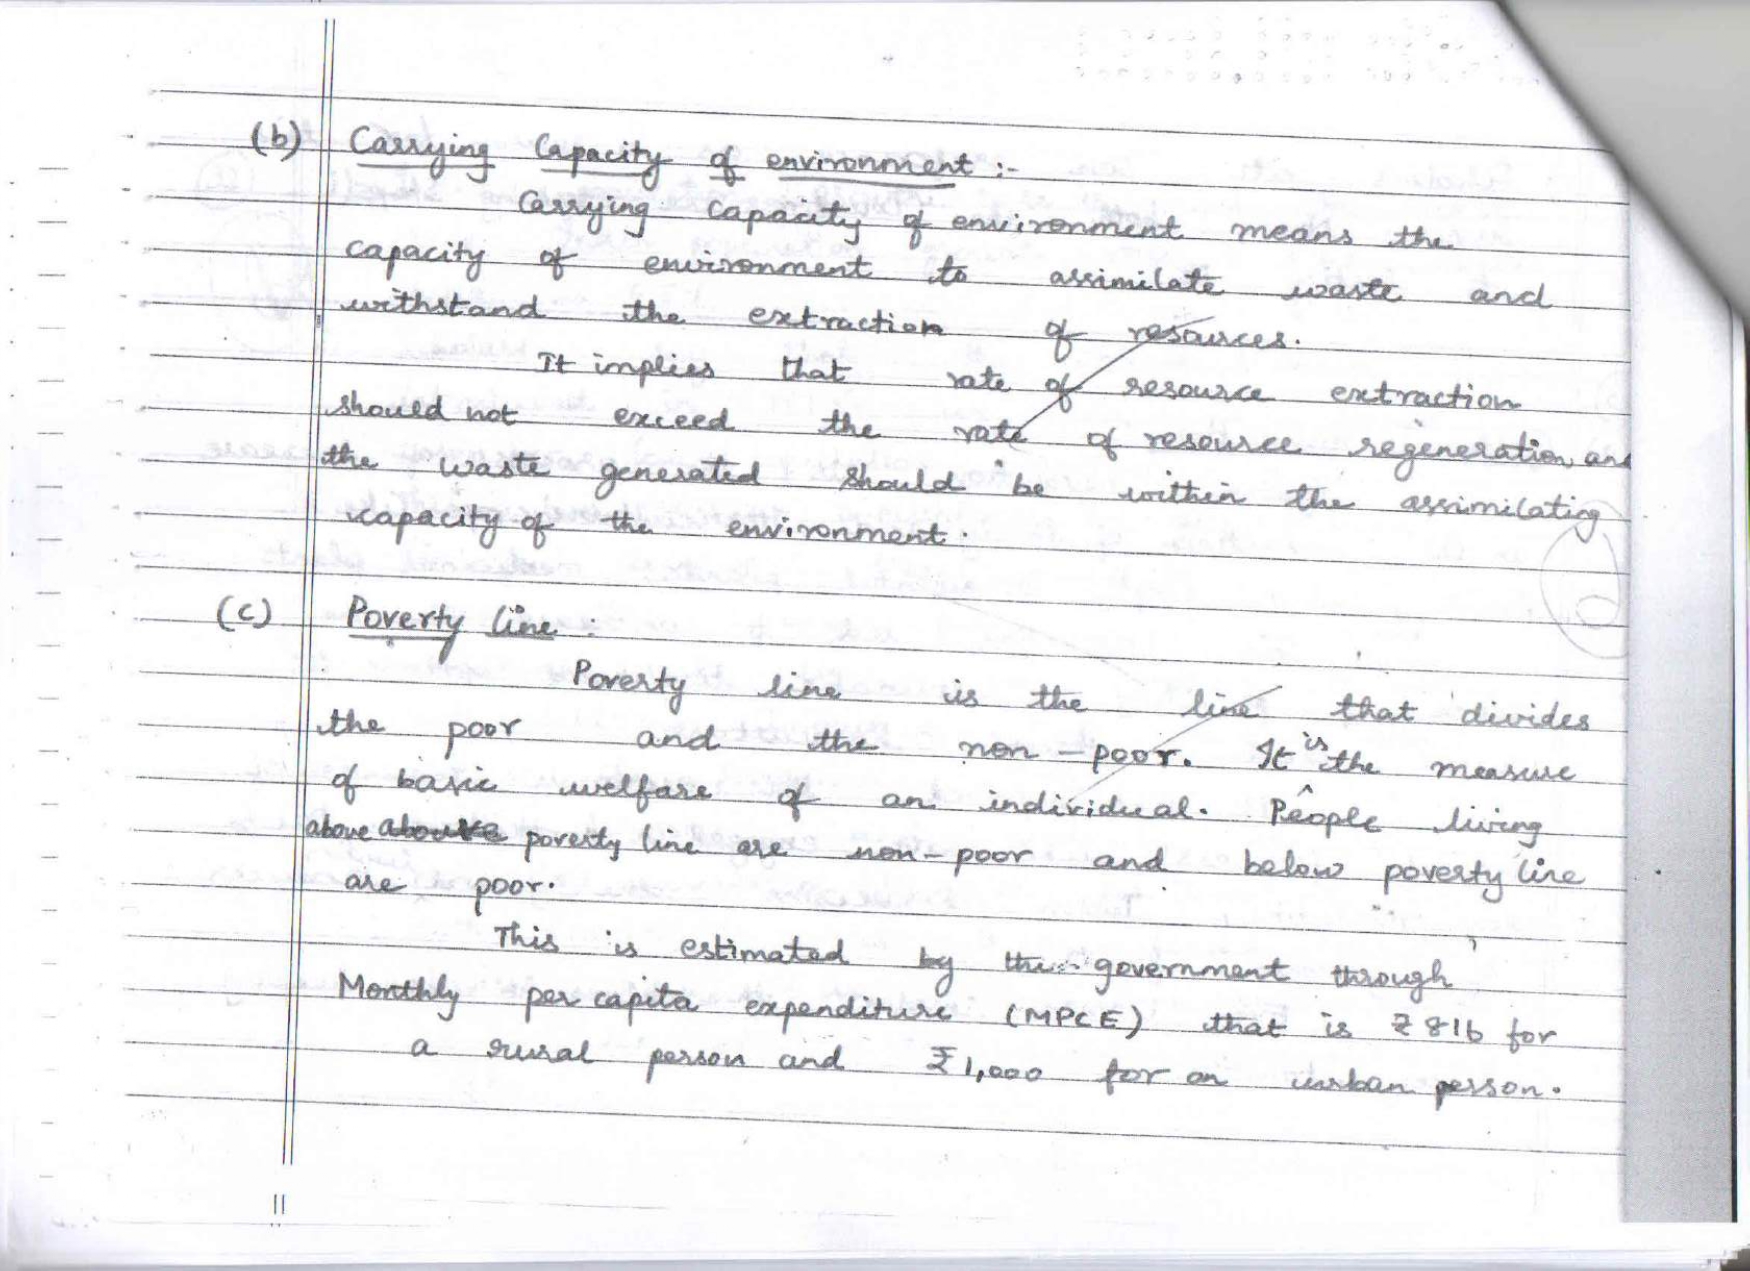 (b) Carrying Capacity of environment :-
Carrying capacity of environment means the
capacity of environment to assimilate waste and
withstand the extraction of resources.
It implies that rate of resource extraction
should not exceed the rate of resource regeneration and
the waste generated should be within the assimilating
capacity of the environment.
(c) Poverty line :
Poverty line is the line that divides
the poor and the non-poor. It is the measure
of basic welfare of an individual. People living
above above poverty line are non-poor and below poverty line
are poor.
This is estimated by the government through
Monthly per capita expenditure (MPCE) that is ₹816 for
a rural person and ₹1,000 for an urban person.